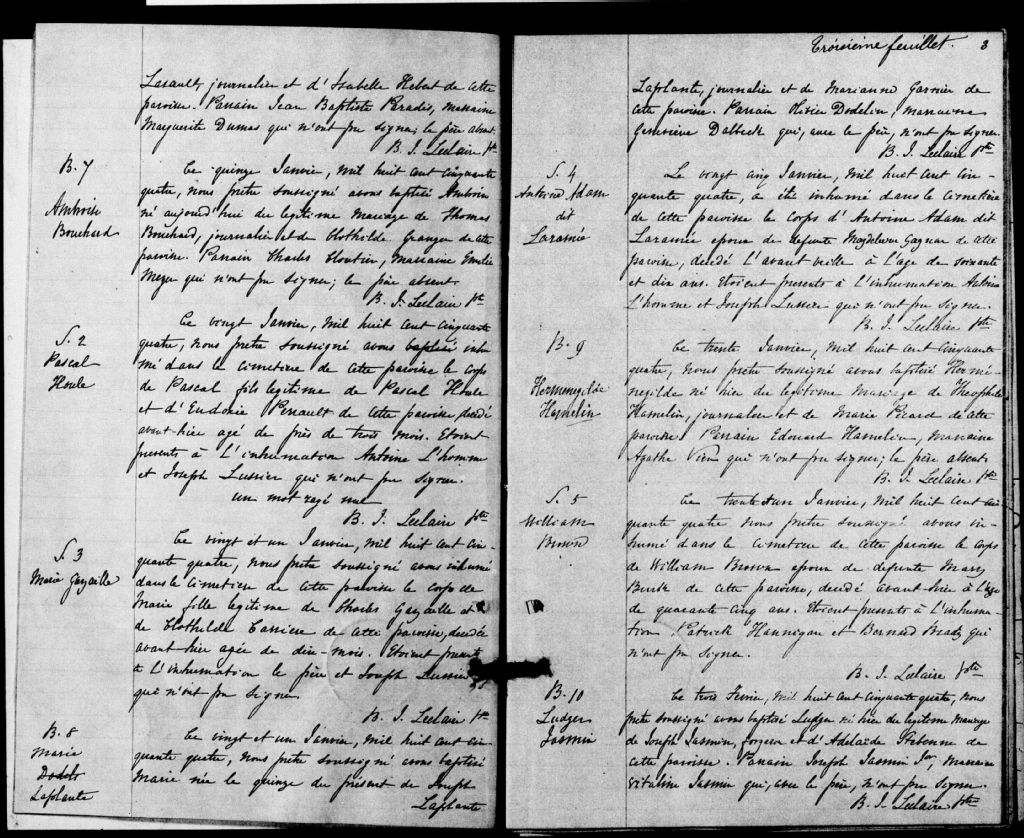 Lesault, journalier et d'Isabelle Hebert de cette
paroisse. Parrain Jean Baptiste Paradis, marraine
Marguerite Dumas qui n'ont pu signer; le père absent.
B. J. Leclaire Ptre
B. 7
Ambroise
Bouchard
Ce quinze Janvier, mil huit cent cinquante
quatre, nous prêtre soussigné avons baptisé Ambroise
né aujourd'hui du legitime mariage de Thomas
Bouchard, journalier et de Clothilde Granger de cette
paroisse. Parrain Charles Cloutier, Marraine Emelie
qui n'ont pu signer; le père absent.
B. J. Leclaire Ptre
S. 2
Pascal
Houle
Ce vingt Janvier, mil huit cent cinquante
quatre, nous prêtre soussigné avons baptisé inhu
mé dans le cimetiere de cette paroisse le corps
de Pascal fils legitime de Pascal Houle
et d'Eudoxie Renault de cette paroisse, decédé
avant-hier agé de près de trois mois. Etoient
presents à L'inhumation Antoine L'homme
et Joseph Lussier qui n'ont pu signer.
un mot rayé nul
B. J. Leclaire Ptre
S. 3
Marie Gazaille
Ce vingt et un Janvier, mil huit cent cin-
quante quatre, nous prêtre soussigné avons inhumé
dans le cimetiere de cette paroisse le corps de
Marie fille legitime de Charles Gazaille et
de Clothilde de cette paroisse, decedée
avant-hier agée de dix-mois. Etoient presents
à L'inhumation le père et Joseph Lussier
qui n'ont pu signer.
B. J. Leclaire Ptre
B. 8
Marie
Dodelo
Laplante
Ce vingt et un Janvier, mil huit cent cin-
quante quatre, nous prêtre soussigné avons baptisé
Marie née le quinze du présent de Joseph
Laplante
Troisième feuillet. 3
Laplante, journalier et de Marianne Garnier de
cette paroisse. Parrain Olivier Dodelin, marraine
Geneviève Dalbeck qui, avec le père, n'ont pu signer.
B. J. Leclaire Ptre
S. 4
Antoine Adam
dit
Laramée
Le vingt cinq Janvier, mil huit cent cin-
quante quatre, a été inhumé dans le cimetière
de cette paroisse le corps d'Antoine Adam dit
Laramée epoux de defunte Magdeleine Gagnon de cette
paroisse, decédé L'avant veille à L'age de soixante
et dix ans. Etoient presents à L'inhumation Antoine
L'homme et Joseph Lussier qui n'ont pu signer.
B. J. Leclaire Ptre
B. 9
Hermenegilde
Hamelin
Ce trente Janvier, mil huit cent cinquante
quatre, nous prêtre soussigné avons baptisé Hermé-
negilde né hier du legitime mariage de Theophile
Hamelin, journalier et de Marie Picard de cette
paroisse. Parrain Edouard Hamelin, Marraine
Agathe Vien qui n'ont pu signer; le père absent.
B. J. Leclaire Ptre
S. 5
William
Brown
Ce trente et un Janvier, mil huit cent cin
quante quatre nous prêtre soussigné avons in-
humé dans le cimetiere de cette paroisse le corps
de William Brown epoux de defunte Mary
Burk de cette paroisse, decédé avant-hier à L'age
de quarante cinq ans. Etoient presents à L'inhuma-
tion Patrick Hannigan et Bernard Brady qui
n'ont pu signer.
B. J. Leclaire Ptre
B. 10
Ludger
Jasmin
Ce trois Fevrier, mil huit cent cinquante quatre, nous
prêtre soussigné avons baptisé Ludger né hier du legitime mariage
de Joseph Jasmin, forgeron et d'Adelaïde de
cette paroisse. Parrain Joseph Jasmin Jor, Marraine
Vitaline Jasmin qui, avec le père, n'ont pu signer.
B. J. Leclaire Ptre